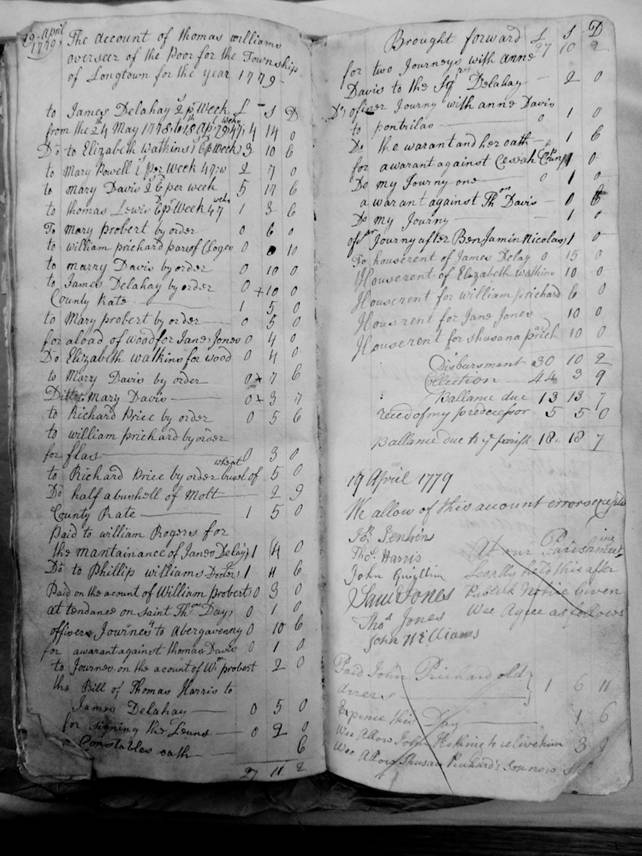 19 April 1779
The account of thomas williams
overseer of the Poor for the Township
of Longtown for the year 1779
to James Delahay 2s pr Week £ S D
from the 24 May 1778 to 18 Ap 79 47 weeks 4 14 0
Do to Elizabeth Watkins 1 6 pr Week 3 10 6
to Mary Powell 1s per Week 47 w 2 7 0
to mary Davis 2 6 per week 5 17 6
to thomas Lewis 6 pr Week 47 weeks 1 3 6
To Mary probert by order 0 6 0
to william prichard par of Cloges 0 8 10
to marry Davis by order 0 10 0
to James Delahay by order 0 10 0
County Rate 1 5 0
to Mary probert by order 0 5 0
for a load of wood for Jane Jones 0 4 0
Do Elizabeth watkins for wood 0 4 0
to Mary Davis by order 0 7 6
Ditto Mary Davis 0 3 7
to Richard Price by order 0 5 6
to william prichard by order
for flax 0 3 0
to Richard Price by order busl of wheat 5 0
Do half a bushell of Mott 2 9
County Rate 1 5 0
Paid to william Rogers for
the mantainance of Jane Delay 1 4 0
Do to Phillip williams Docter 1 11 6
Paid on the acount of William Probert 0 3 0
at tendance on Saint Thos Day 0 1 0
officers Journey to Abergavenny 0 10 6
for a warant against thomas Davis 0 1 0
to Journey on the acount of Wm probert 2 0
the Bill of Thomas Harris to
James Delahay 0 5 0
for Signing the Leuns 0 2 0
a Constables oath 6
27 11 2
Brought forward £ S D
27 10 2
for two Journeys with anne
Davis to the Sqr Delahay 2 0
Do officer Journy with anne Davis
to pontrilas 0 1 0
Do the warant and her oath 1 6
for a warant against 1 0
Do my Journy one 0 1 0
a warant against Thos Davis 0
Do my Journy 1 0
ofsr Journy after Benjamin Nicolas 1 0
To houserent of James Delay 0 15 0
Houserent of Elizabeth watkins 10 0
Houserent for william prichard 6 0
Housrent for Jane Jones 10 0
Houserent for Shusana prich 10 0
Disbursment 30 10 2
Collection 44 3 9
Ballame due 13 13 7
reced of my predecesor 5 5 0
Ballame due to ye parish 18 18 7
19 April 1779
We allow of this account errors excepted
Jos Jenkins
Thos Harris
John Gwyllim
Saml Jones
Thos Jones
John Williams
At our Parish meeting
Leaally held this after
Publick Notice Given
Wee Agree as follows
Paid John Prichard old
arrers 1 6 11
Expence this Day 1 6
Wee Allow John Hoskins to relive him 3
Wee Alow Shusan Prichard